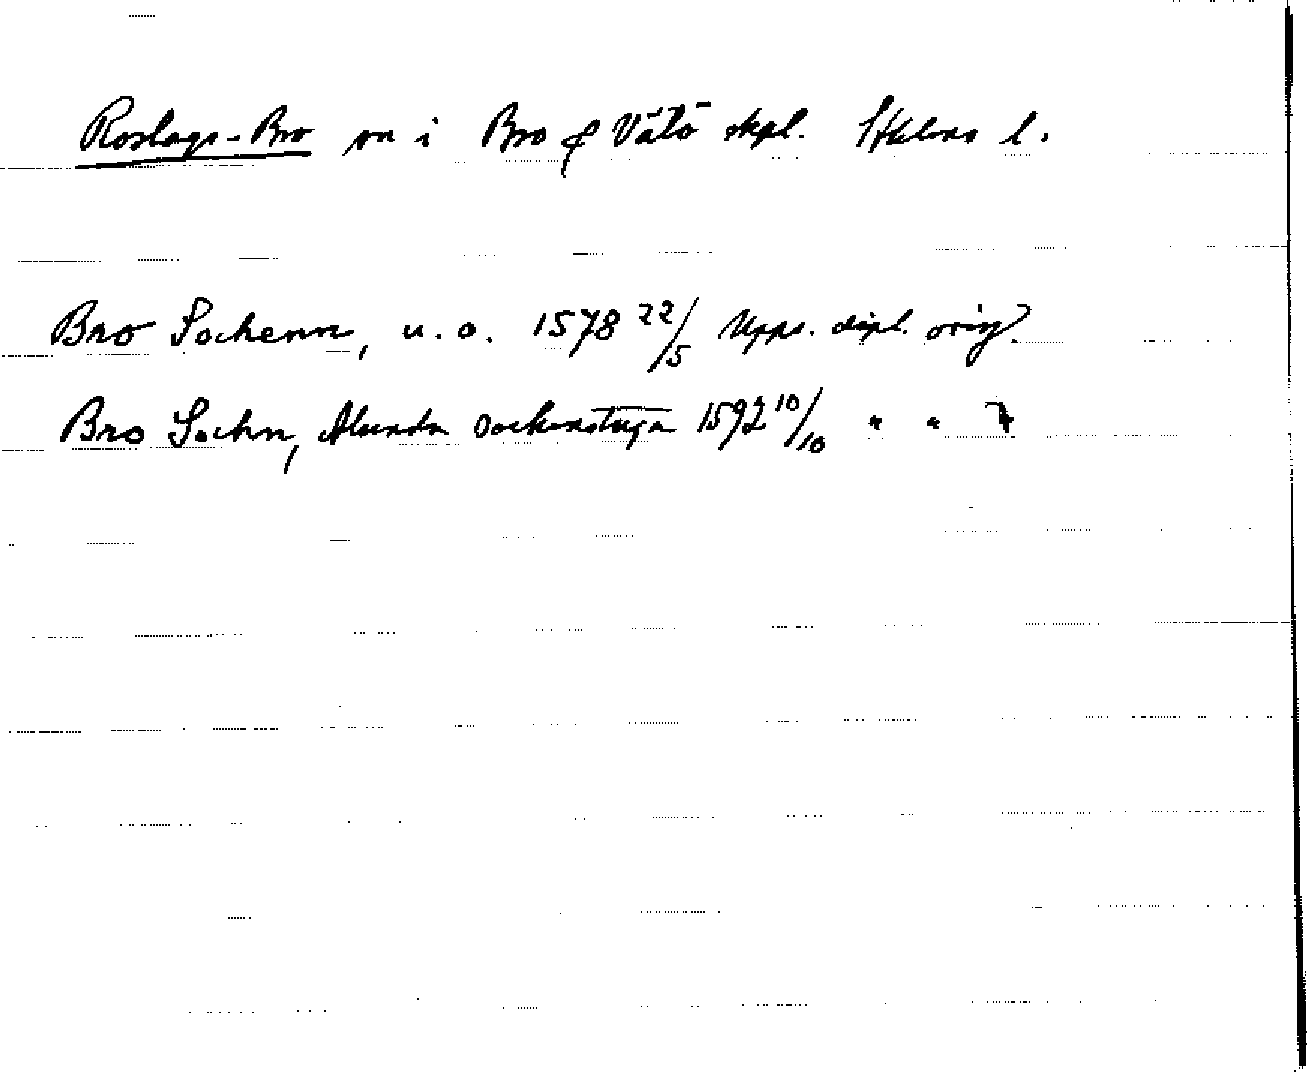 Roslags-Bro sn i Bro & Vätö skpl. Sthlms l.
Bro Sochenn, u.o. 1578 22/5 Upps. dipl. orig.
Bro Sochn, Alunda sockenstuga 1592 10/10 " "